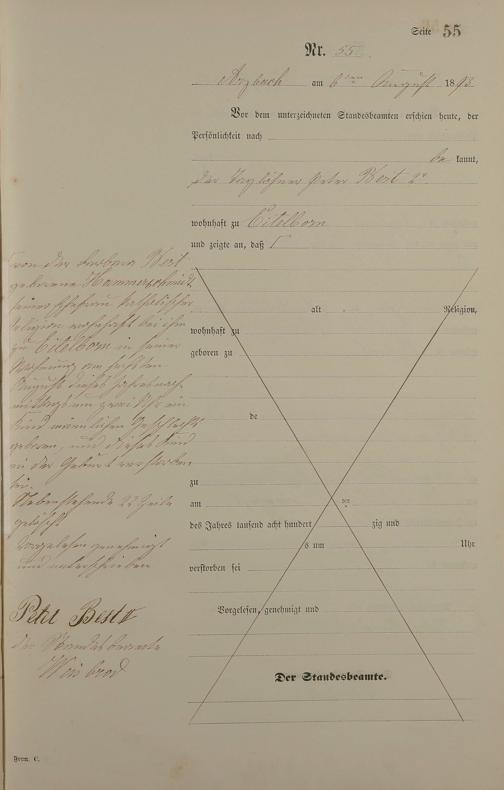 Seite 55
Nr. 55
Arzbach am 6ten August 1893
Vor dem unterzeichneten Standesbeamten erschien heute, der
Persönlichkeit nach
be kannt,
der Taglöhner Peter Best 2r
wohnhaft zu Eitelborn
und zeigte an, daß
von der Best
geborene Hammerschmidt
seiner Ehefrau katholischer
Religion wohnhaft bei ihm
zu Eitelborn in seiner
Wohnung am sechsten
August dieses Jahres nach
mittags um zwei Uhr ein
Kind männlichen Geschlechts
geboren, und dieses Kind
in der Geburt verstorben
sei.
Nebenstehende 22 Zeilen
gelöscht
Vorgelesen genehmigt
und unterschrieben
Peter Best II
der Standesbeamte
alt Religion,
wohnhaft zu
geboren zu
de
zu
am ten
des Jahres tausend acht hundert zig und
s um Uhr
verstorben sei
Vorgelesen, genehmigt und
Der Standesbeamte.
Form. C.